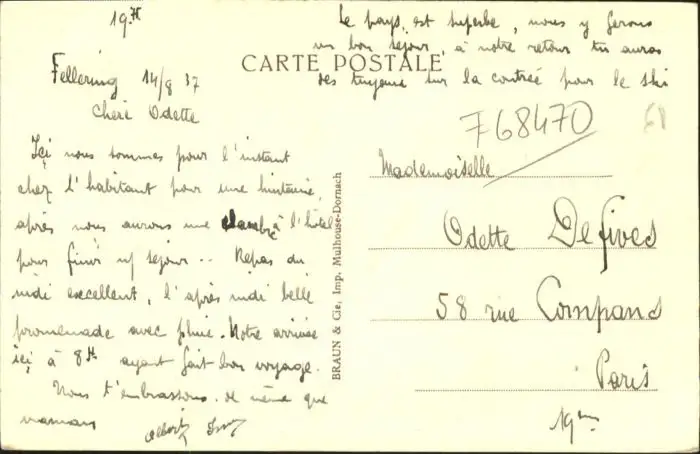 19.H
Le pays est superbe, nous y ferons
un bon séjour, à notre retour tu auras
des tuyaux sur la contrée pour le ski
CARTE POSTALE
Fellering 14/8 37
Chère Odette
Ici nous sommes pour l'instant
chez l'habitant pour une huitaine,
après nous aurons une chambre à l'hôtel
pour finir séjour.. Repas du
midi excellent, l'après midi belle
promenade avec pluie. Notre arrivée
ici à 8H ayant fait bon voyage.
Nous t'embrassons de même que
maman
Albert
BRAUN & Cie, Imp. Mulhouse-Dornach
F68470
68
Mademoiselle
Odette Defives
58 rue Compans
Paris
19ème